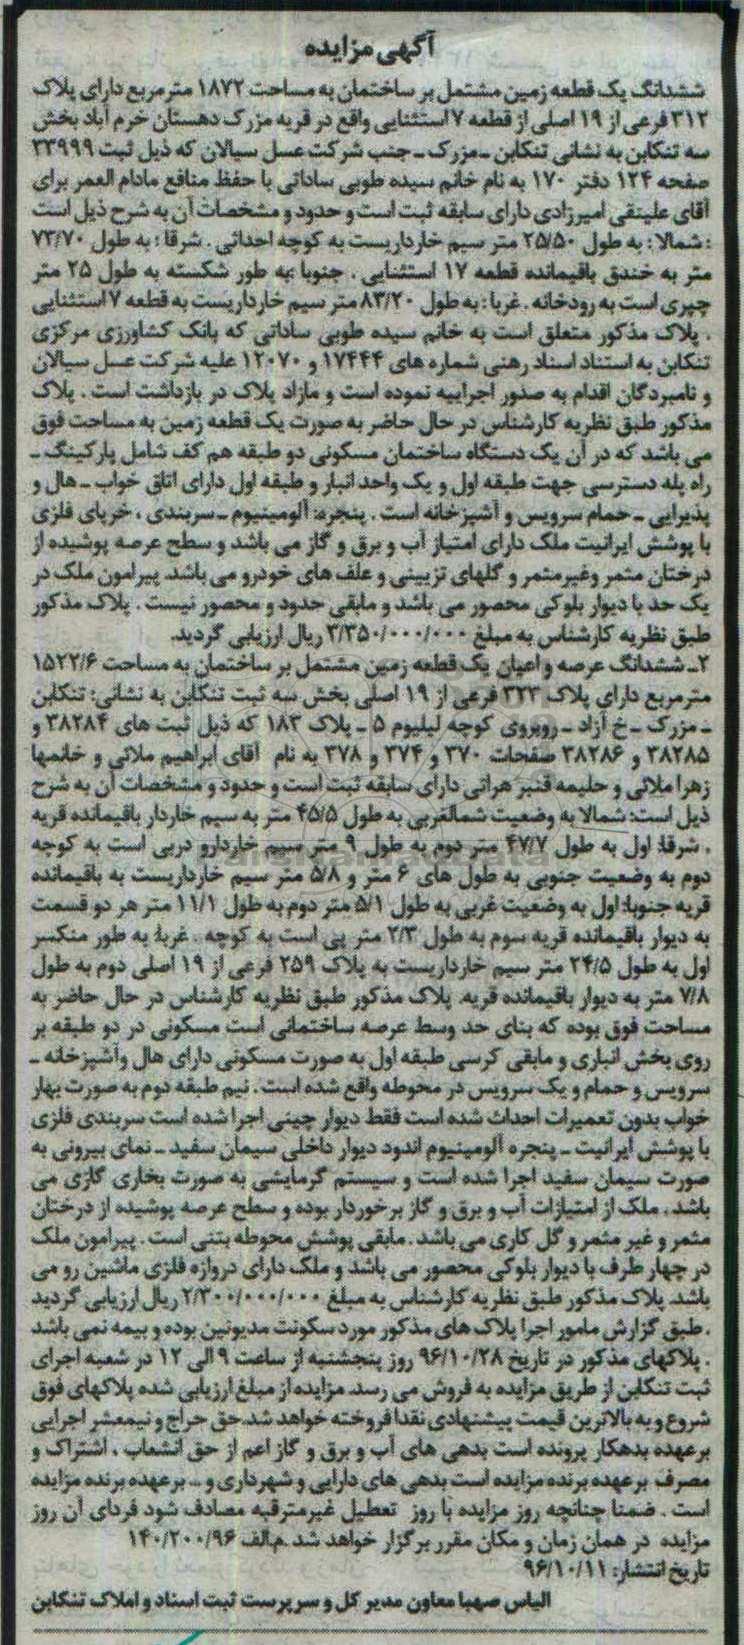 آگهی مزایده
ششدانگ یک قطعه زمین مشتمل بر ساختمان به مساحت ۱۸۷۲ مترمربع دارای پلاک
۳۱۲ فرعی از ۱۹ اصلی از قطعه ۷ استثنایی واقع در قریه مزرک دهستان خرم آباد بخش
سه تنکابن به نشانی تنکابن ـ مزرک ـ جنب شرکت عسل سیالان که ذیل ثبت ۳۳۹۹۹
صفحه ۱۲۴ دفتر ۱۷۰ به نام خانم سیده طوبی ساداتی با حفظ منافع مادام العمر برای
آقای علینقی امیرزادی دارای سابقه ثبت است و حدود و مشخصات آن به شرح ذیل است
: شمالا : به طول ۲۵/۵۰ متر سیم خارداریست به کوچه احداثی . شرقا : به طول ۷۳/۷۰
متر به خندق باقیمانده قطعه ۱۷ استثنایی . جنوبا : به طور شکسته به طول ۲۵ متر
چپری است به رودخانه . غربا : به طول ۸۳/۲۰ متر سیم خارداریست به قطعه ۷ استثنایی
. پلاک مذکور متعلق است به خانم سیده طوبی ساداتی که بانک کشاورزی مرکزی
تنکابن به استناد اسناد رهنی شماره های ۱۷۴۴۴ و ۱۲۰۷۰ علیه شرکت عسل سیالان
و نامبردگان اقدام به صدور اجراییه نموده است و مازاد پلاک در بازداشت است . پلاک
مذکور طبق نظریه کارشناس در حال حاضر به صورت یک قطعه زمین به مساحت فوق
می باشد که در آن یک دستگاه ساختمان مسکونی دو طبقه هم کف شامل پارکینگ ـ
راه پله دسترسی جهت طبقه اول و یک واحد انبار و طبقه اول دارای اتاق خواب ـ هال و
پذیرایی ـ حمام سرویس و آشپزخانه است . پنجره: آلومینیوم ـ سربندی ، خرپای فلزی
با پوشش ایرانیت ملک دارای امتیاز آب و برق و گاز می باشد و سطح عرصه پوشیده از
درختان مثمر وغیرمثمر و گلهای تزیینی و علف های خودرو می باشد. پیرامون ملک در
یک حد با دیوار بلوکی محصور می باشد و مابقی حدود و محصور نیست . پلاک مذکور
طبق نظریه کارشناس به مبلغ ۳/۳۵۰/۰۰۰/۰۰۰ ریال ارزیابی گردید.
۲ـ ششدانگ عرصه و اعیان یک قطعه زمین مشتمل بر ساختمان به مساحت ۱۵۲۲/۶
مترمربع دارای پلاک ۳۲۳ فرعی از ۱۹ اصلی بخش سه ثبت تنکابن به نشانی: تنکابن
ـ مزرک ـ خ آزاد ـ روبروی کوچه لیلیوم ۵ ـ پلاک ۱۸۳ که ذیل ثبت های ۳۸۲۸۴ و
۳۸۲۸۵ و ۳۸۲۸۶ صفحات ۳۷۰ و ۳۷۴ و ۳۷۸ به نام آقای ابراهیم ملائی و خانمها
زهرا ملائی و حلیمه قنبر هراتی دارای سابقه ثبت است و حدود و مشخصات آن به شرح
ذیل است: شمالا به وضعیت شمالغربی به طول ۴۵/۵ متر به سیم خاردار باقیمانده قریه
. شرقا: اول به طول ۴۷/۷ متر دوم به طول ۹ متر سیم خاردارو دربی است به کوچه
دوم به وضعیت جنوبی به طول های ۶ متر و ۵/۸ متر سیم خارداریست به باقیمانده
قریه جنوبا: اول به وضعیت غربی به طول ۵/۱ متر دوم به طول ۱۱/۱ متر هر دو قسمت
به دیوار باقیمانده قریه سوم به طول ۲/۳ متر پی است به کوچه . غربا: به طور منکسر
اول به طول ۲۴/۵ متر سیم خارداریست به پلاک ۲۵۹ فرعی از ۱۹ اصلی دوم به طول
۷/۸ متر به دیوار باقیمانده قریه. پلاک مذکور طبق نظریه کارشناس در حال حاضر به
مساحت فوق بوده که بنای حد وسط عرصه ساختمانی است مسکونی در دو طبقه بر
روی بخش انباری و مابقی کرسی طبقه اول به صورت مسکونی دارای هال وآشپزخانه ـ
سرویس و حمام و یک سرویس در محوطه واقع شده است . نیم طبقه دوم به صورت بهار
خواب بدون تعمیرات احداث شده است فقط دیوار چینی اجرا شده است سربندی فلزی
با پوشش ایرانیت ـ پنجره آلومینیوم اندود دیوار داخلی سیمان سفید ـ نمای بیرونی به
صورت سیمان سفید اجرا شده است و سیستم گرمایشی به صورت بخاری گازی می
باشد . ملک از امتیازات آب و برق و گاز برخوردار بوده و سطح عرصه پوشیده از درختان
مثمر و غیر مثمر و گل کاری می باشد . مابقی پوشش محوطه بتنی است . پیرامون ملک
در چهار طرف با دیوار بلوکی محصور می باشد و ملک دارای دروازه فلزی ماشین رو می
باشد. پلاک مذکور طبق نظریه کارشناس به مبلغ ۲/۳۰۰/۰۰۰/۰۰۰ ریال ارزیابی گردید
. طبق گزارش مامور اجرا پلاک های مذکور مورد سکونت مدیونین بوده و بیمه نمی باشد
. پلاکهای مذکور در تاریخ ۹۶/۱۰/۲۸ روز پنجشنبه از ساعت ۹ الی ۱۲ در شعبه اجرای
ثبت تنکابن از طریق مزایده به فروش می رسد. مزایده از مبلغ ارزیابی شده پلاکهای فوق
شروع و به بالاترین قیمت پیشنهادی نقدا فروخته خواهد شد. حق حراج و نیمعشر اجرایی
برعهده بدهکار پرونده است بدهی های آب و برق و گاز اعم از حق انشعاب ، اشتراک و
مصرف برعهده برنده مزایده است بدهی های دارایی و شهرداری و ... برعهده برنده مزایده
است . ضمنا چنانچه روز مزایده با روز تعطیل غیرمترقبه مصادف شود فردای آن روز
مزایده در همان زمان و مکان مقرر برگزار خواهد شد .م/الف ۱۴۰/۲۰۰/۹۶
تاریخ انتشار: ۹۶/۱۰/۱۱
الیاس صهبا معاون مدیر کل و سرپرست ثبت اسناد و املاک تنکابن